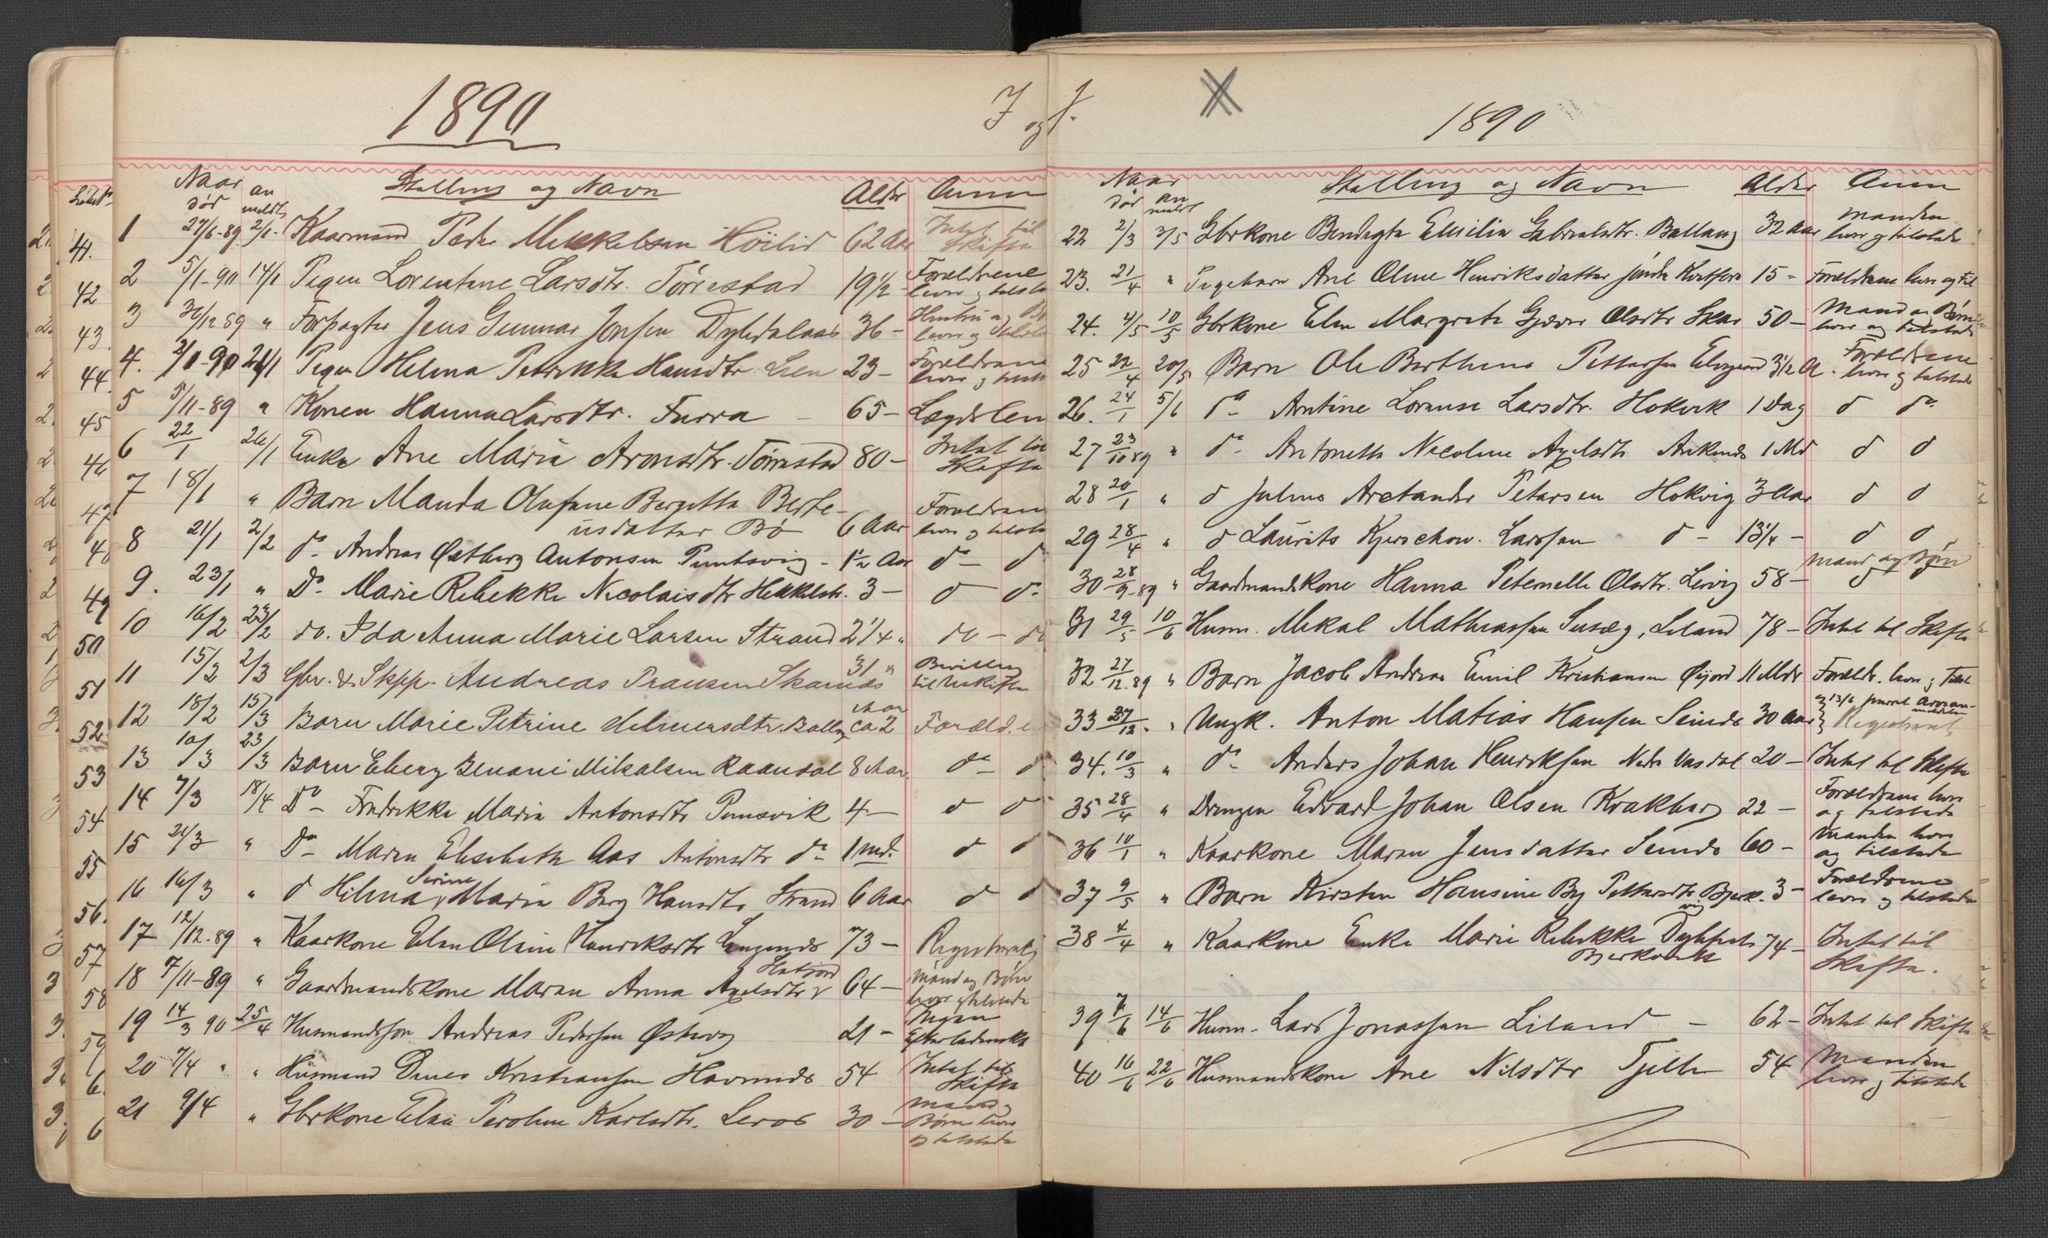 1890
Naar
død
an
meldt
Stilling og Navn
Alder
Anm
1 27/6-89 2/1- Kaarmand Peder Mikkelsen Höilid 62 Aar Intet til
Skifte
2 5/1-90 14/1 Pigen Lorentine Larsdtr. Tørrestad 19 1/2 - Forældrene
lever og tilstede
3 30/12 89 " Forpagter Jens Gunnar Jonsen Dyhdalaas 36 - Hustru og
lever og
4. 2/1-90 21/1 Pigen Helma Petrikke Hansdtr. Lien 23 - Forældrene
lever og
5 5/11-89 " Konen Hanna Larsdtr. Furra 65 - Lægdslem
6 22/1 26/1 Enke Ane Maria Aronsdtr. Tørrestad 80 - Intet til
Skifte
7 18/1 " Barn Manda Olufine Bergitta Berte-
usdatter Bø 6 Aar Forældrene
lever og
8 21/1 2/2 do Andreas Østberg Antonsen Puntsvig - 1 1/2 Aar do - d
9. 23/1 " Do Marie Rebekke Nicolaisdtr 3 - d do
10 16/2 23/2 do. Ida Anna Marie Larsen Strand 2 1/4 " do - do
11 15/2 2/3 Gbr. & Skpp. Andreas Transen 31 " Bevilling
til Uskiften
12 18/2 15/3 Barn Marie Petrine Helmersdtr. ca 2 Aar Foræld.
13 10/3 23/3 Barn Eberg Benoni Mikalsen Raandal 8 Aar do - d
14 7/3 18/4 Do - Fredrikke Maria Antonsdtr Punsvik 4 - d d
15 21/3 " Do - Maren Elisebeth Aas Antonsdtr do 1 md. d d
16 16/3 " d Hilma Serine Maria Berg Hansdtr Strand 6 Aar d d
17 12/12-89 " Kaarkone Elen Oline Henriksdtr 73 - Registrering
18 7/11-89 " Gaardmandskone Maren Anna Axelsdtr 64 - Mand og Børn
lever
19 14/3 90 25/4 Husmandssøn Andreas Pedersen Østervig 21 - Ingen
Efterladenskb
20 7/4 " " Husmand Kristiansen 54 Intet til
Skifte
21 9/4 " Gbrkone Elen Karlsdtr. Leros 30 - Mand og
Børn lever
og tilstede
J og J.
1890
Naar
død
an
meldt
Stilling og Navn
Alder
Anm
22 2/3 3/5 Gbrkone Bendigta Emilia Gabrielsdtr. Ballang 32 Aar Manden
lever og tilstede
23. 21/4 " Pigebarn Ane Oline Henriksdatter 15 - Forældrene lever og til
24. 4/5 10/5 Gbrkone Elen Margrete Gjæver Olsdtr Skar 50 - Mand og Børn
lever og tilstede
25 22/4 20/5 Barn Ole Bertheus Pettersen Elvegaard 3 1/2 A. Forældrene
lever og tilstede
26. 24/1 5/6 do Antine Lorense Larsdtr. Hokvik 1 Dag d do
27 23/10 89 " do Antonette Nicoline Axelsdtr Ankenes 1 Md d d
28 20/1 " d Julius Arctander Petersen Hokvig 3 Aar d d
29 28/4 " d Laurits Kjerschow Larssen d - 13 1/4 - d d
30 28/9 89 " Gaardmandskone Hanna Peternelle Olsdtr. Leivig 58 - Mand og Børn
d
31 29/5 10/6 Husm. Mikal Mathiassen Susæg, Liland 78 - Intet til Skifte
32 27/12 89 " Barn Jacob Andreas Emil Kristiansen Øijord 11 Mdr Foreldr. lever og
33 27/12 " Ungk. Anton Matias Hansen Seines 30 Aar
Registreret
34. 10/3 " do Anders Johan Henriksen Nedr Vasdal 20 - Intet til Skifte
35 28/4 " Drengen Edvard Johan Olsen Krakberg 22 - Forældrene lever
og tilstede
36 10/1 " Kaarkone Maren Jensdatter Seines 60 - Manden lever
og tilstede
37 9/5 " Barn Kirsten Hansine By Pettersdtr Bjerk. 3 - Forældrene
lever og tilstede
38 4/4 " Kaarkone Enke Marie Rebekke
Bjerkvik 74 - Intet til
Skifte.
39 7/6 14/6 Husm. Lars Jonassen Liland - 62 - Intet til Skifte
40 16/6 22/6 Husmandskone Ane Nilsdtr Tjelle 54 Manden
lever og tilstede
41.
42
43.
44.
45
46
47
48
49
50
51
52
53
54
55
56.
57
58
59